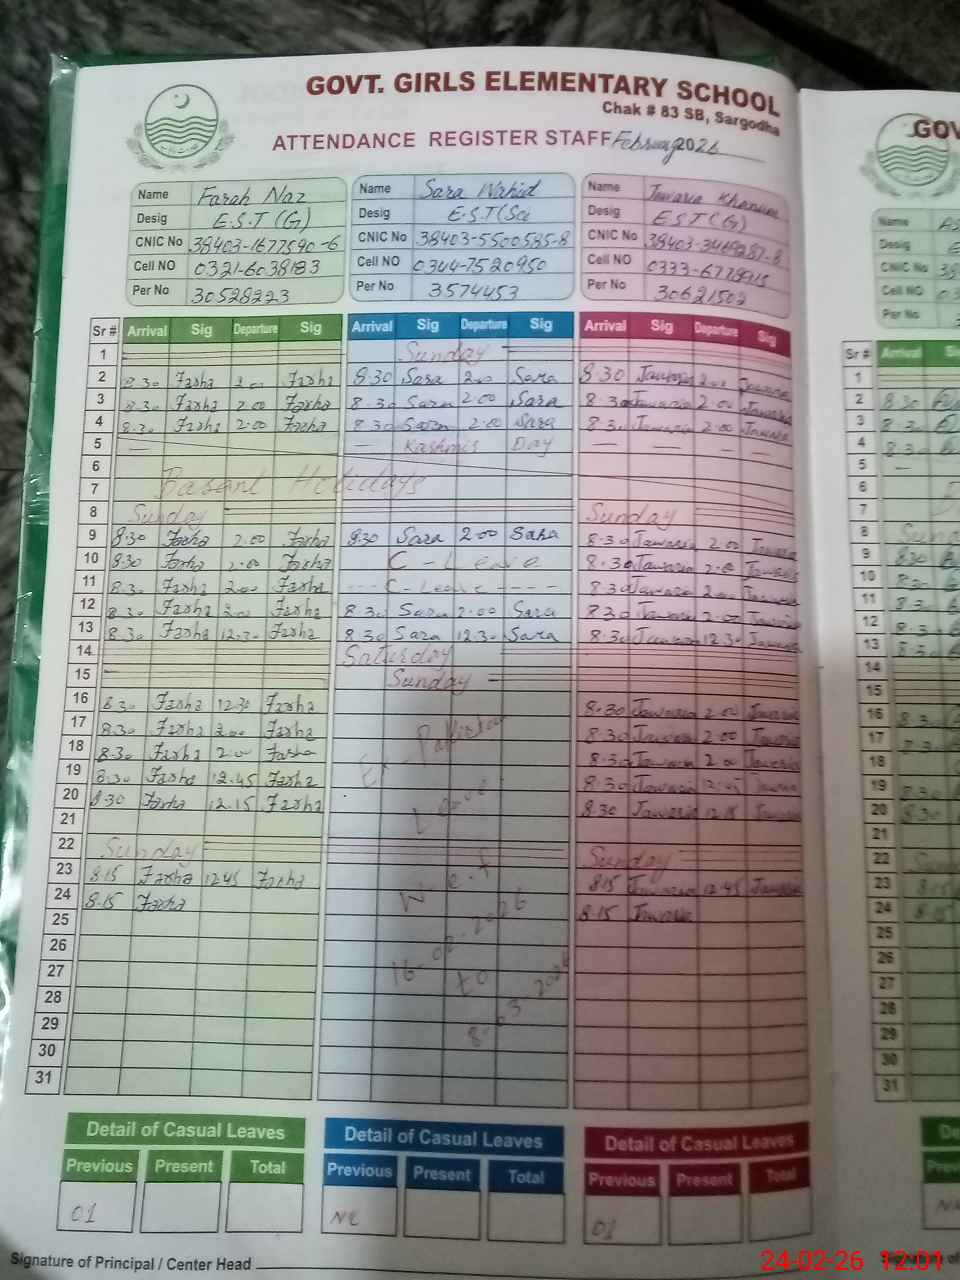 GOVT. GIRLS ELEMENTARY SCHOOL
Chak # 83 SB, Sargodha
ATTENDANCE REGISTER STAFF February 2026
Name Farah Naz Name Sara Nahid Name Jawaria Khanum
Desig E.S.T (G) Desig E.S.T (Sci Desig E.S.T (G)
CNIC No 38403-1677590-6 CNIC No 38403-5500585-8 CNIC No
Cell NO 0321-6038183 Cell NO 0344-7520950 Cell NO
Per No 30528223 Per No 3574453 Per No 30621502
Sr # Arrival Sig Departure Sig Arrival Sig Departure Sig Arrival Sig Departure Sig
1 Sunday
2 8.30 Farha 2.00 Farha 8.30 Sara 2.00 Sara 8.30 Jawaria 2.00 Jawaria
3 8.30 Farha 2.00 Farha 8.30 Sara 2.00 Sara 8.30 Jawaria 2.00 Jawaria
4 8.30 Farha 2.00 Farha 8.30 Sara 2.00 Sara 8.30 Jawaria 2.00 Jawaria
5 — — Kashmir Day — — —
6
7 Basant Holidays
8 Sunday Sunday
9 8.30 Farha 2.00 Farha 8.30 Sara 2.00 Sara 8.30 Jawaria 2.00 Jawaria
10 8.30 Farha 2.00 Farha C - Leave 8.30 Jawaria 2.00 Jawaria
11 8.30 Farha 2.00 Farha C - Leave 8.30 Jawaria 2.00 Jawaria
12 8.30 Farha 2.00 Farha 8.30 Sara 2.00 Sara 8.30 Jawaria 2.00 Jawaria
13 8.30 Farha 12.30 Farha 8.30 Sara 12.30 Sara 8.30 Jawaria 12.30 Jawaria
14 Saturday
15 Sunday
16 8.30 Farha 12.30 Farha 8.30 Jawaria 2.00 Jawaria
17 8.30 Farha 2.00 Farha Ex-Pakistan 8.30 Jawaria 2.00 Jawaria
18 8.30 Farha 2.00 Farha 8.30 Jawaria 2.00 Jawaria
19 8.30 Farha 12.45 Farha Leave 8.30 Jawaria 12.45 Jawaria
20 8.30 Farha 12.15 Farha 8.30 Jawaria 12.15 Jawaria
21
22 Sunday Sunday
23 8.15 Farha 12.45 Farha W.e.f 8.15 Jawaria 12.45 Jawaria
24 8.15 Farha 8.15 Jawaria
25 16-02-2026
26
27 to
28
29 8-03-2026
30
31
Detail of Casual Leaves Detail of Casual Leaves Detail of Casual Leaves
Previous Present Total Previous Present Total Previous Present Total
01 NL 01
Signature of Principal / Center Head
GOV
Name
Desig
CNIC No
Cell NO
Per No
Sr # Arrival
1
2 8.30
3 8.30
4 8.30
5 —
6
7
8
9 8.30
10 8.30
11 8.30
12 8.30
13 8.30
14
15
16 8.30
17 8.30
18
19 8.30
20 8.30
21
22
23 8.15
24 8.15
25
26
27
28
29
30
31
24-02-26 12:01